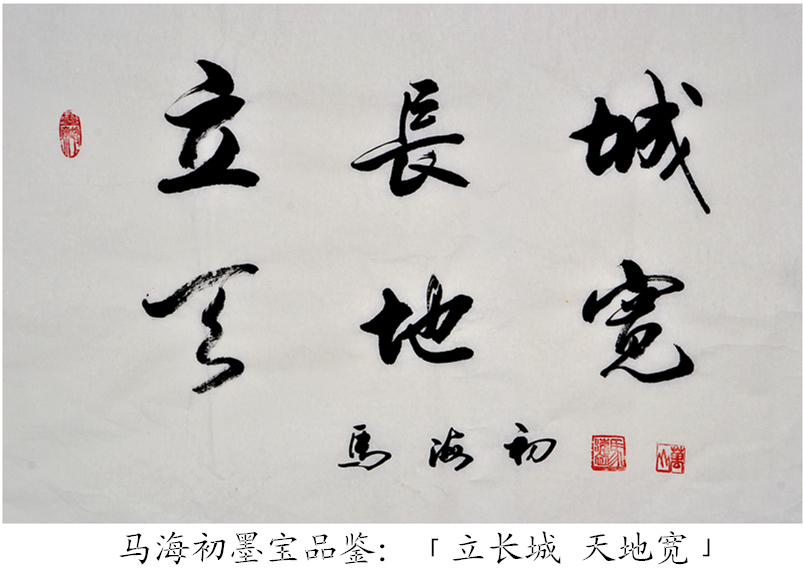 立長城
天地宽
馬海初
马海初墨宝品鉴：「立长城 天地宽」